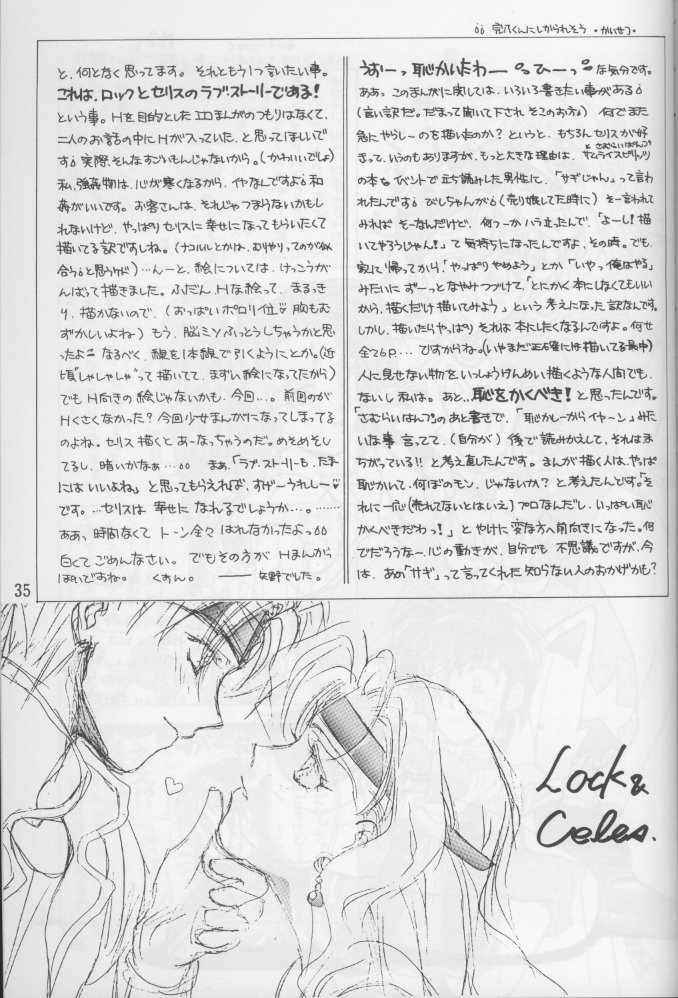 完爪くんにしかられそう ・かいせつ・
うおーッ恥かいたわー ひーっ な気分です。
ああっ このまんがに関しては、いろいろ書きたい事がある
(言い訳だ。だまって聞いて下され そこのお方) 何でまた
急にやらしーのも描いたのか? というと、もちろん セリスが好
きって、いうのもありますが、もっと大きな理由は、サムライスピリッツ
さむらいぱんつ
の本をイベントで立ち読みした男性に、「サギじゃん」って言わ
れたんです びしちゃんが(売り娘してた時に) そー言われて
みれば そーなんだけど、何つーかハラ立ったんで、「よーし!描
いてやろうじゃん!」て気持ちになったんですよ、その時。でも、
家に帰ってから、「やっぱりやめよう」とか「いやっ俺はやる」
みたいに ずーっとなやみつづけて、「とにかく本にしなくてもいい
から、描くだけ描いてみよう」という考えになった訳なんです。
しかし、描いたらやっぱり それは本にしたくなるんですよ。何せ
全て6P… ですからね。(いやまだ正確には描いてる最中)
人に見せない物を いっしょうけんめい描くような人間でも、
ないし私は。あと…恥をかくべき!と思ったんです。
「さむらいはんつ」のあと書きで、「恥かしーからイヤーン」みた
いな事 言ってて、(自分が) 後で読みかえして、それはま
ちがっている!! と考え直したんです。まんが描く人は、やっぱ
恥かいて、何ぼのモン、じゃないか? と考えたんです。「そ
れに一応(売れてないとはいえ)プロなんだし、いっぱい恥
かくべきだわっ!」とやけに変な方へ前向きになった。何
でだろうなー、心の動きが、自分でも 不思議ですが、今
は、あの「サギ」って言ってくれた知らない人のおかげかも?
と、何となく思ってます。それともう1つ言いたい事。
これは、ロックとセリスのラブストーリーである!
という事。Hを目的としたエロまんがのつもりはなくて、
二人のお話の中にHが入っていた、と思ってほしいで
す 実際、そんなすごいもんじゃないから。(かわいいでしょ)
私、強姦物は、心が寒くなるから、イヤなんですよ 和
姦がいいです。お客さんは、それじゃつまらないかもし
れないけど、やっぱりセリスに幸せになってもらいたくて
描いてる訳ですしね。(ナコルルとかは、むりやりってのが似
合うと思うケド) …んーと、絵については、けっこうが
んばって描きました。ふだん Hな絵って、まるっき
り、描かないので、(おっぱいポロリ位♡ 胸もむ
ずかしいよね) もう、脳ミソふっとうしちゃうかと思
ったよ なるべく、線を1本線で引くようにとか。(近
頃"しゃしゃしゃ"って描いてて、まずい絵になってたから)
でもH向きの絵じゃないかも、今回…。前回のが
Hくさくなかった? 今回少女まんがになってしまってる
のよね。セリス描くと あーなっちゃうのだ。めそめそし
てるし、暗いかなぁ… まぁ、「ラブ・ストーリーも、たま
にはいいよね」と思ってもらえれば、すげーうれしー♡
です。…セリスは 幸せに なれるでしょうか…。……
ああ、時間なくて トーン全々 はれなかったよっ
白くてごめんなさい。でもその方が Hまんから
ぽいですね。 くすん。 ── 矢野でした。
35
Lock &
Celes.